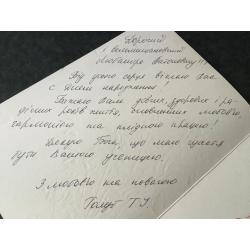 Дорогий
і вельмишановний
Любомире Антоновичу!!!
Від усього серця вітаю Вас
з Днем народження!
Бажаю Вам довгих, здорових і ра-
дісних років життя, сповнених любов'ю,
гармонією та плідною працею!
Дякую Богу, що маю щастя
бути Вашою ученицею.
З любов'ю та повагою
Голуб Т.